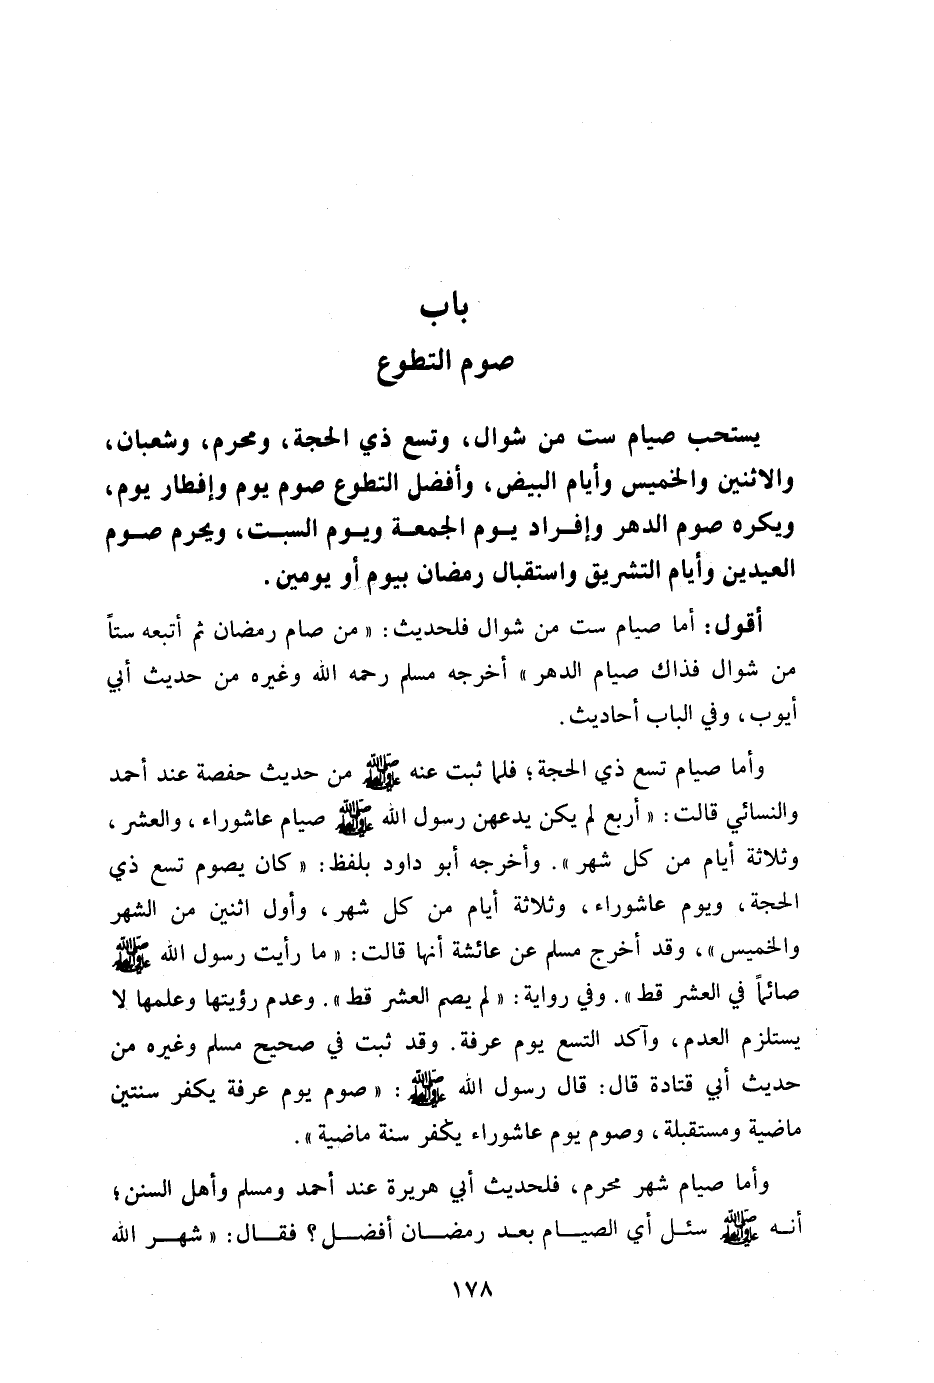 باب
صوم التطوع
يستحب صيام ست من شوال، وتسع ذي الحجة، ومحرم، وشعبان،
والاثنين والخميس وأيام البيض، وأفضل التطوع صوم يوم وإفطار يوم،
ويكره صوم الدهر وإفراد يوم الجمعة ويوم السبت، ويحرم صوم
العيدين وأيام التشريق واستقبال رمضان بيوم أو يومين.
أقول: أما صيام ست من شوال فلحديث: « من صام رمضان ثم أتبعه ستاً
من شوال فذاك صيام الدهر » أخرجه مسلم رحمه الله وغيره من حديث أبي
أيوب، وفي الباب أحاديث.
وأما صيام تسع ذي الحجة؛ فلما ثبت عنه ﷺ من حديث حفصة عند أحمد
والنسائي قالت: « أربع لم يكن يدعهن رسول الله ﷺ صيام عاشوراء، والعشر،
وثلاثة أيام من كل شهر ». وأخرجه أبو داود بلفظ: « كان يصوم تسع ذي
الحجة، ويوم عاشوراء، وثلاثة أيام من كل شهر، وأول اثنين من الشهر
والخميس »، وقد أخرج مسلم عن عائشة أنها قالت: « ما رأيت رسول الله ﷺ
صائماً في العشر قط ». وفي رواية: « لم يصم العشر قط ». وعدم رؤيتها وعلمها لا
يستلزم العدم، وآكد التسع يوم عرفة. وقد ثبت في صحيح مسلم وغيره من
حديث أبي قتادة قال: قال رسول الله ﷺ : « صوم يوم عرفة يكفر سنتين
ماضية ومستقبلة، وصوم يوم عاشوراء يكفر سنة ماضية ».
وأما صيام شهر محرم، فلحديث أبي هريرة عند أحمد ومسلم وأهل السنن؛
أنه ﷺ سئل أي الصيام بعد رمضان أفضل؟ فقال: « شهر الله
١٧٨